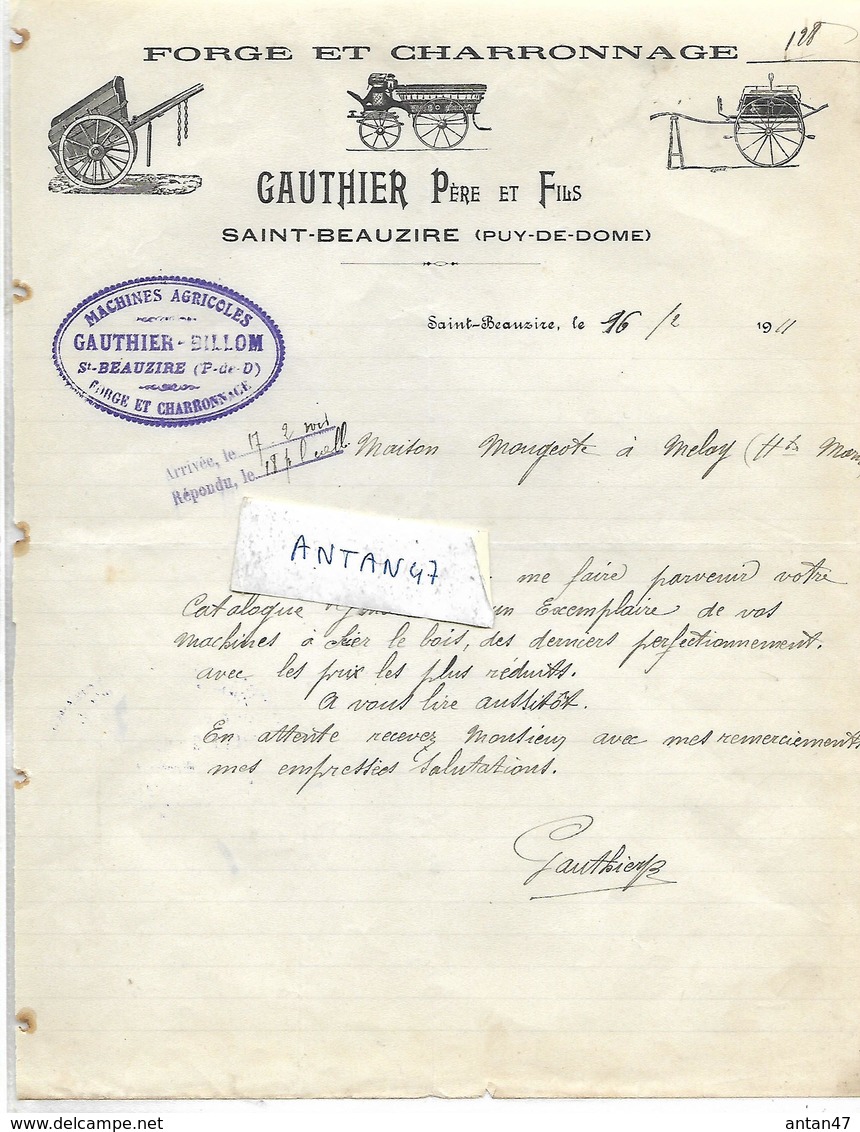 128
FORGE ET CHARRONNAGE
GAUTHIER PÈRE ET FILS
SAINT-BEAUZIRE (PUY-DE-DOME)
MACHINES AGRICOLES
GAUTHIER-BILLOM
St-BEAUZIRE (P-de-D)
FORGE ET CHARRONNAGE
Saint-Beauzire, le 16/2 1911
Arrivée, le 17 2
Répondu, le 18
Maison Mougeote à Melay (Hte Marn
ANTAN47
me faire parvenir votre
Catalogue un Exemplaire de vos
Machines à scier le bois, des derniers perfectionnement.
avec les prix les plus réduits.
A vous lire aussitôt.
En attente recevez Monsieur avec mes remerciements
mes empressées Salutations.
Gauthier
antan47